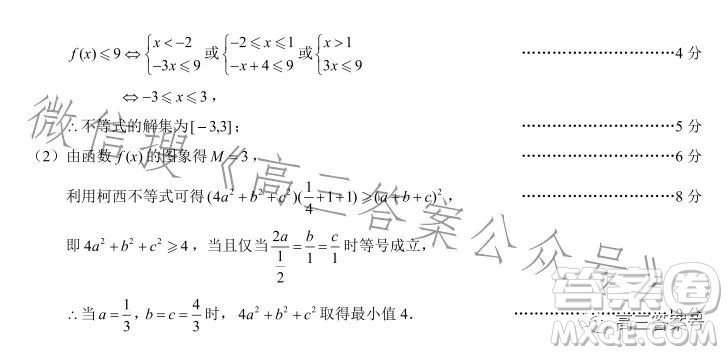 f(x)⩽9⇔{x<−2 −3x⩽9 或 {−2⩽x⩽1 −x+4⩽9 或 {x>1 3x⩽9 ……………………………4 分
⇔−3⩽x⩽3，
∴不等式的解集为[−3,3]； ……………………………5 分
（2）由函数 f(x) 的图象得 M=3， ……………………………6 分
利用柯西不等式可得 (4a²+b²+c²)(1/4+1+1)⩾(a+b+c)²， ……………………………8 分
即 4a²+b²+c²⩾4，当且仅当 2a/(1/2)=b/1=c/1 时等号成立，
∴当 a=1/3，b=c=4/3 时，4a²+b²+c² 取得最小值 4．
微信搜《高三答案公众号》
答案圈
高三答案号